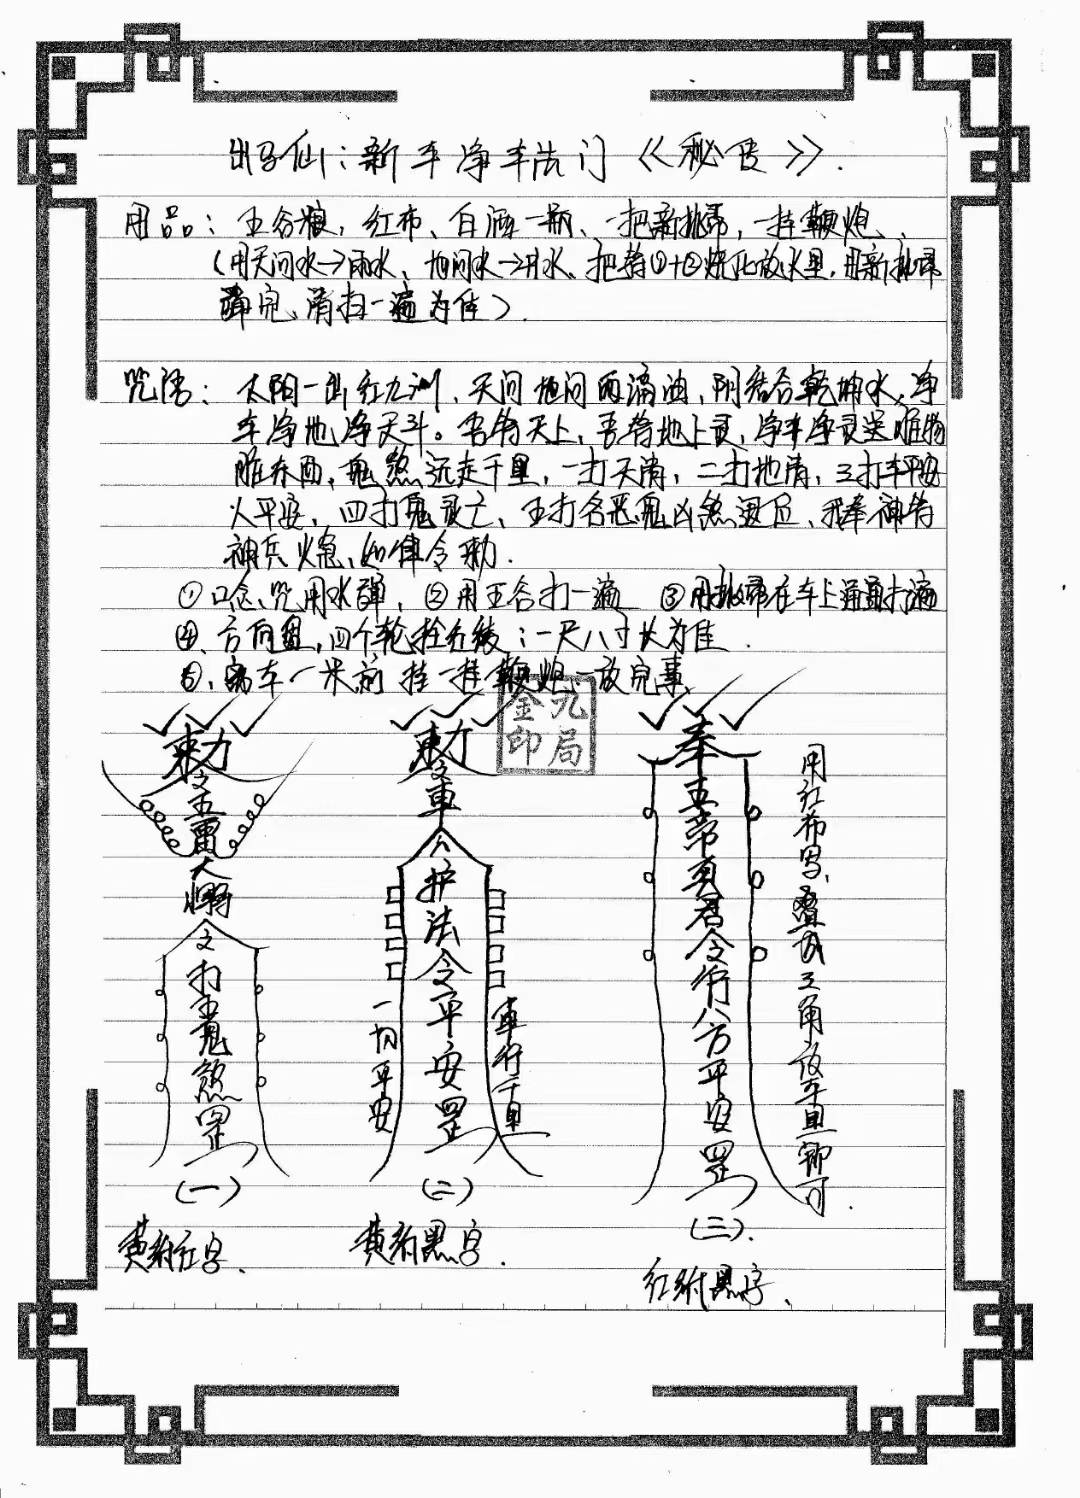 出马仙：新车净车法门《秘传》.
用品：五谷粮，红布、白酒一瓶、一把新扫帚，一挂鞭炮、
（用天间水→雨水、地间水→井水、把符①+②烧化放水里，用新扫帚
弹完、清扫一遍为佳）.
咒语：太阳一出红九洲，天间地间两滴油，阴阳结合乾坤水，净
车净地净天斗。吾符天上，吾符地上灵，净车净灵送脏物
脏东西，鬼煞远走千里，一打天清，二打地清，三打车平安
人平安，四打鬼灵亡、五打各恶鬼凶煞退位、我奉神符
神兵火急、如律令勅.
①口念咒用水弹，②用五谷打一遍 ③用扫帚在车上通通打遍
④、方向盘，四个轮拴红绫；一尺八寸长为佳.
⑤、离车一米前挂一挂鞭炮、一放完事
九局
金印
勅令五雷大将
令打五鬼煞罡
（一）
黄符红字.
勅令車公护法令平安罡
一切平安
車行千里
（二）
黄符黑字.
奉五帝真君令行八方平安罡
（三）.
红符黑字、
用红布写，叠成三角放车里即可.